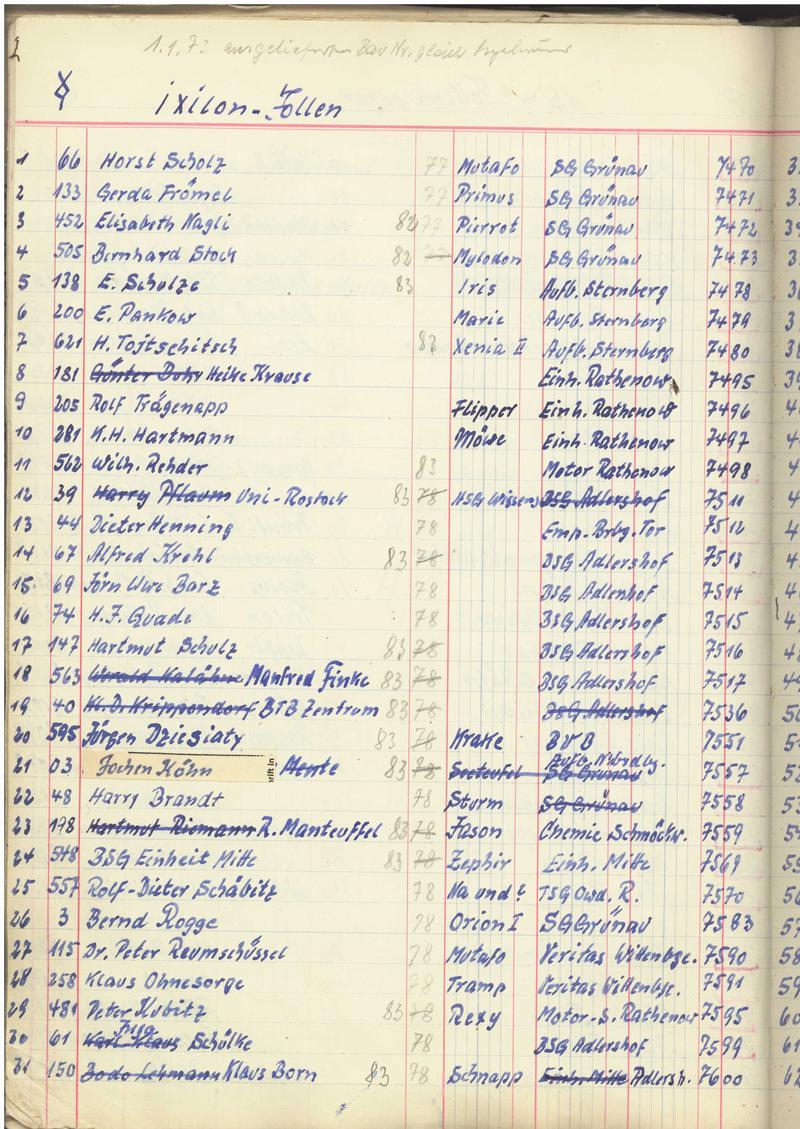 1.1.73 ausgeliefert Bau Nr. gleich
ixilon-Jollen
1 66 Horst Scholz 77 Mutafo SG Grünau 7470
2 133 Gerda Frömel 77 Primus SG Grünau 7471
3 452 Elisabeth Nagli 82 77 Pierrot SG Grünau 7472
4 505 Bernhard Stock 82 77 Mylodon SG Grünau 7473
5 138 E. Schulze 83 Iris Aufb. Sternberg 7478
6 200 E. Pankow Marie Aufb. Sternberg 7479
7 621 H. Tojtschitsch 83 Xenia II Aufb. Sternberg 7480
8 181 Günter Bohr Heike Krause Einh. Rathenow 7495
9 205 Rolf Trägenapp Flipper Einh. Rathenow 7496
10 281 K.H. Hartmann Möwe Einh. Rathenow 7497
11 562 Wilh. Rehder 83 Motor Rathenow 7498
12 39 Harry Pflaum Uni-Rostock 83 78 HSG Wissens BSG Adlershof 7511
13 44 Dieter Henning 78 Emp. Brbg. Tor 7512
14 67 Alfred Krehl 83 78 BSG Adlershof 7513
15 69 Jörn Uwe Barz 78 BSG Adlershof 7514
16 74 H.J. Quade 78 BSG Adlershof 7515
17 147 Hartmut Schulz 83 78 BSG Adlershof 7516
18 563 Manfred Finke 83 78 BSG Adlershof 7517
19 40 K.D. Krippendorf BTB Zentrum 83 78 BSG Adlershof 7536
20 595 Jürgen Dziesiaty 83 78 Krake BVB 7551
21 03 Jochen Köhn Mente 83 78 Seeteufel SG Grünau Aufb. 7557
22 48 Harry Brandt 78 Sturm SG Grünau 7558
23 198 Hartmut Riemann R. Manteuffel 83 78 Jason Chemie Schmöckw. 7559
24 548 BSG Einheit Mitte 83 78 Zephir Einh. Mitte 7569
25 557 Rolf-Dieter Schäbitz 78 Na und? TSG Owd. R. 7570
26 3 Bernd Rogge 78 Orion I SG Grünau 7583
27 115 Dr. Peter Reumschüssel 78 Mutafo Veritas Wittenbge. 7590
28 258 Klaus Ohnesorge 78 Tramp Veritas Wittenbge. 7591
29 481 Peter Kubitz 83 78 Rexy Motor-S. Rathenow 7595
30 61 Karl Klaus Schülke 78 BSG Adlershof 7599
31 150 Bodo Lehmann Klaus Born 83 78 Schnapp Einh. Mitte Adlersh. 7600